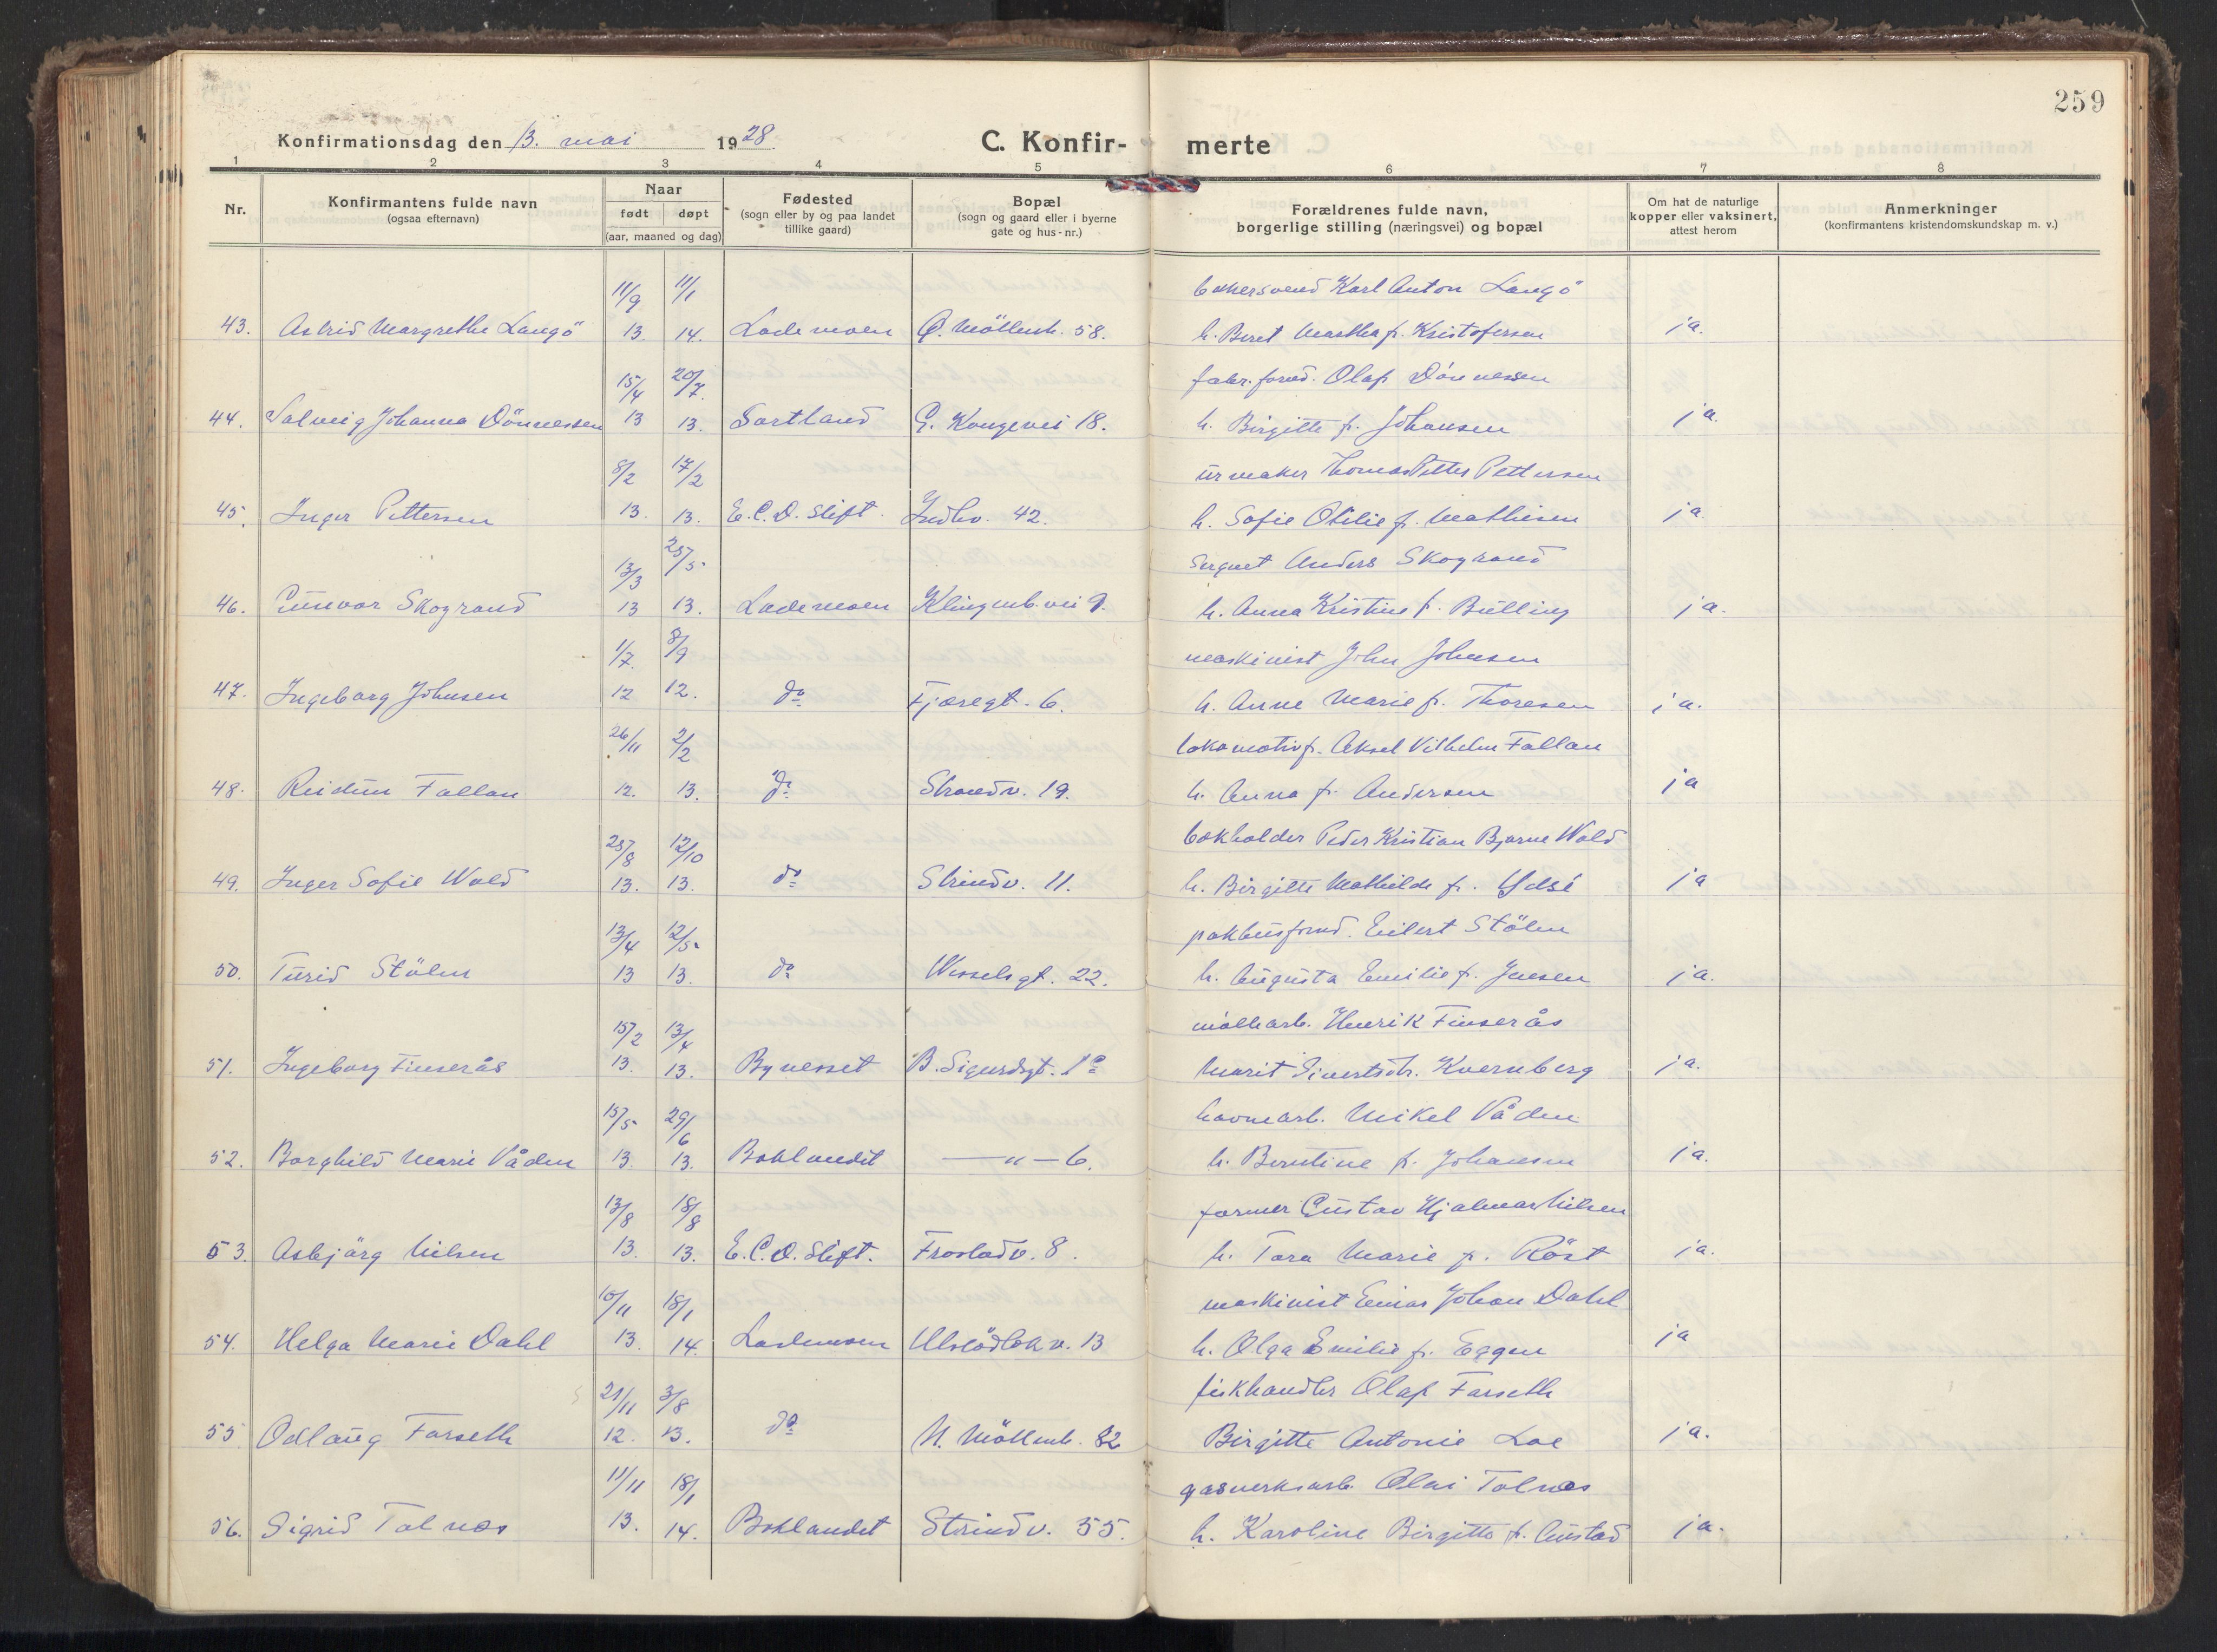 259
Konfirmationsdag den 13. mai 1928.
C. Konfir- merte
1 2 3 4 5 6 7 8
Nr.
Konfirmantens fulde navn
(ogsaa efternavn)
Naar
født døpt
(aar, maaned og dag)
Fødested
(sogn eller by og paa landet
tillike gaard)
Bopæl
(sogn og gaard eller i byerne
gate og hus-nr.)
Forældrenes fulde navn,
borgerlige stilling (næringsvei) og bopæl
Om hat de naturlige
kopper eller vaksinert,
attest herom
Anmerkninger
(konfirmantens kristendomskundskap m. v.)
11/9 11/1 Karl Anton Langö
43. Astrid Margrethe Langö 13. 14. Lademoen Ø. Möllenb. 58. h. Beret Martha f. Kristofersen ja.
15/4 20/7. fabr. forvd. Olaf Dönnessen
44. Solveig Johanna Dönnessen 13 13. Sortland G. Kongevei 18. h. Birgitte f. Johansen ja.
8/2 17/2 urmaker Thomas Petter Pettersen
45. Inger Pettersen 13. 13. E. C. D. Stift. Indhv. 42. h. Sofie Otilie f. Mathisen ja.
13/3 25/5 Anders Skogrand
46. Gunvor Skogrand 13 13. Lademoen Klingenb. vei 9. h. Anna Kristine f. Bulling ja.
1/7. 8/9 maskinist John Johnsen
47. Ingeborg Johnsen 12 12. do Fjæregt. 6. h. Anne Marie f. Thoresen ja.
26/11 2/2 lokomotivf. Aksel Vilhelm Fallan
48. Reidun Fallan 12. 13. do Strandv. 19. h. Anna f. Andersen ja
25/8 12/10 bokholder Peder Kristian Bjarne Wold
49. Inger Sofie Wold 13. 13. do Strindv. 11. h. Birgitte Mathilde f. Ydsi ja
13/4 12/5. pakhusforvd. Eilert Stölen
50. Turid Stölen 13 13. do Wesselsgt. 22. h. Augusta Emilie f. Jensen ja.
15/2 13/4 Henrik Finserås
51. Ingeborg Finserås 13. 13. Bynesset B. Sigurdsgt. 1c Marit Sivertsdtr. Kvernberg ja.
15/5 29/6 havnearb. Mikel Våden
52. Borghild Marie Våden 13. 13. Baklandet — " — 6. h. Berntine f. Johansen ja.
13/8 18/8 former Gustav Hjalmar Nilsen
53. Asbjörg Nilsen 13. 13. E. C. D. Stift. Frostadv. 8. h. Tora Marie f. Röst ja.
10/11 18/1 maskinist Einar Johan Dahl
54. Helga Marie Dahl 13. 14. Lademoen Ulstadlökv. 13 h. Olga Emilie f. Eggen ja
21/11 3/8 fiskhandler Olaf Farseth
55 Odlaug Farseth 12. 13. do N. Möllenb. 82 Birgitte Antonie Loe ja.
11/11 18/1 gasverksarb. Olai Tolnæs
56. Sigrid Tolnæs 13. 14. Baklandet Strindv. 55. h. Karoline Birgitte f. Austad ja.